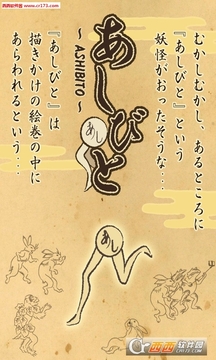 西西软件园 www.cr173.com
むかしむかし、あるところに
『あしびと』という
妖怪がおったそうな…
あしびと
～ASHIBITO～
あし
『あしびと』は
描きかけの絵巻の中に
あらわれるという…
あし
西西软件园